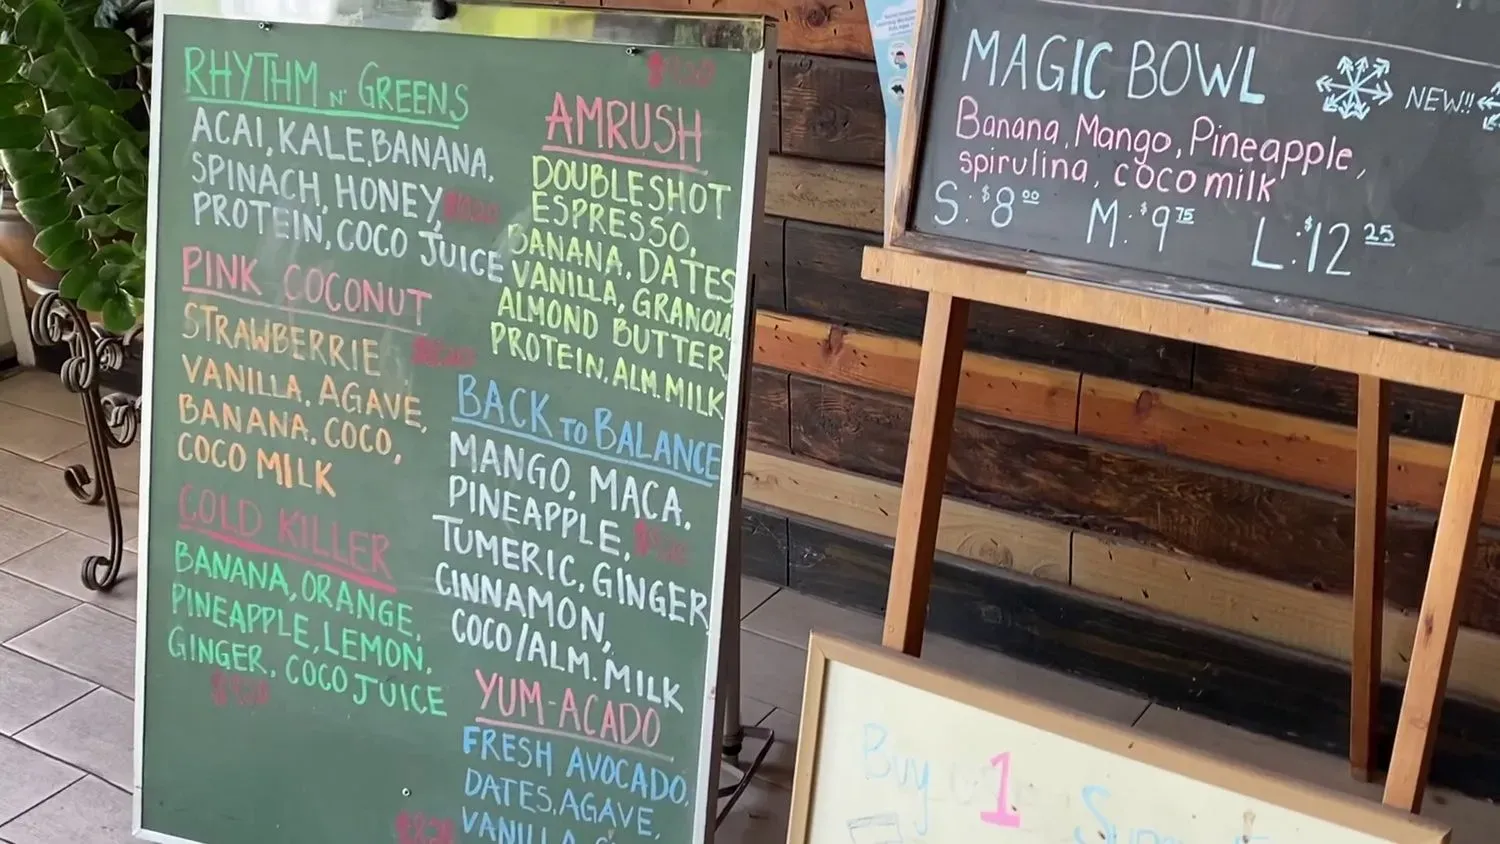 RHYTHM N' GREENS
ACAI, KALE, BANANA,
SPINACH, HONEY,
PROTEIN, COCO JUICE
PINK COCONUT
STRAWBERRIE
VANILLA, AGAVE,
BANANA, COCO,
COCO MILK
COLD KILLER
BANANA, ORANGE,
PINEAPPLE, LEMON,
GINGER, COCO JUICE
AMRUSH
DOUBLESHOT
ESPRESSO,
BANANA, DATES
VANILLA, GRANOLA
ALMOND BUTTER
PROTEIN, ALM. MILK
BACK TO BALANCE
MANGO, MACA,
PINEAPPLE,
TUMERIC, GINGER
CINNAMON,
COCO/ALM. MILK
YUM-ACADO
FRESH AVOCADO,
DATES, AGAVE,
VANILLA
MAGIC BOWL NEW!!
Banana, Mango, Pineapple,
spirulina, coco milk
S: $8.00 M: $9.75 L: $12.25
Buy 1